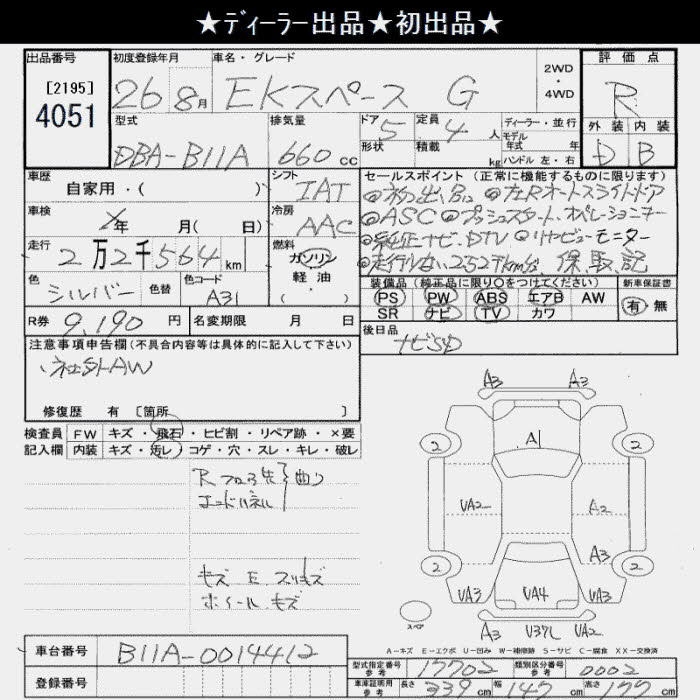 ★ディーラー出品★初出品★
出品番号
[2195]
4051
初度登録年月
26 8月
車名・グレード
EKスペース G
2WD
・
4WD
評価点
R
外装 内装
D B
型式
DBA-B11A
排気量
660cc
ドア 5
形状
定員 4人
積載 kg
ディーラー・並行
モデル
年式 年
ハンドル 左・右
車歴
自家用・( )
シフト
IAT
セールスポイント (正常に機能するものに限ります)
◎初出品 ◎左Rオートスライドドア
◎ASC ◎プッシュスタート、
◎純正ナビ、DTV ◎リヤビューモニター
◎走行少ない 保、取、記
車検
年 月( 日)
冷房
AAC
走行
2万2千564km
燃料
ガソリン
軽油
( )
色
シルバー
色替
色コード
A31
装備品 (純正品に限り○をつけてください)
PS PW ABS エアB AW
SR ナビ TV カワ
新車保証書
有・無
R券 9,190円
名変期限 月 日
後日品
ナビSD
注意事項申告欄 (不具合内容等は具体的に記入して下さい)
社外AW
修復歴 有 [箇所 ]
検査員 FW キズ・飛石・ヒビ割・リペア跡・×要
記入欄 内装 キズ・汚レ・コゲ・穴・スレ・キレ・破レ
Rフロア先 曲り
エンドパネル
キズ E スリキズ
ホイールキズ
A3 A3
2 A1 2
UA2 A2
A3
2 2
UA3 UA4 UA3
スペア
A3 U3 UA2
A-キズ E-エクボ U-凹み W-補修跡 S-サビ C-腐食 XX-交換済
車台番号 B11A-0014412
登録番号
型式指定番号 参考 17702 類別区分番号 参考 0002
車庫証明用 参考 長さ 339cm 幅 147cm 高さ 177cm